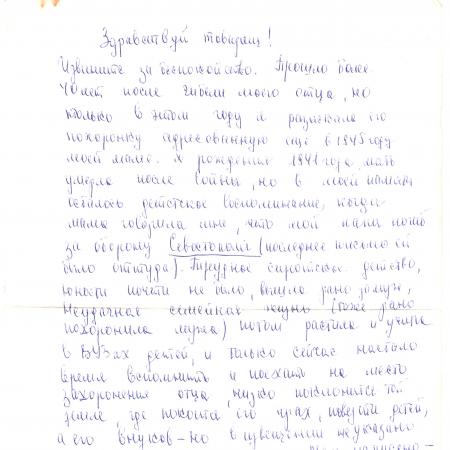 Здравствуй товарищ!
Извините за беспокойство. Прошло более
40 лет после гибели моего отца, но
только в этом году я разыскала его
похоронку адресованную ещё в 1945 году
моей маме. Я рождения 1941 года, мать
умерла после войны, но в моей памяти
осталось детское воспоминание, когда
мама говорила мне, что мой папа погиб
за оборону Севастополь (последнее письмо ей
было оттуда). Трудное сиротское детство,
юности почти не было, вышла рано замуж,
неудачная семейная жизнь (тоже рано
похоронила мужа) потом растила и учила
в ВУЗах детей, и только сейчас настало
время вспомнить и поехать на место
захоронения отца, нужно поклонится той
земле, где покоится его прах, привезти детей,
а его внуков – но в извещении не указано